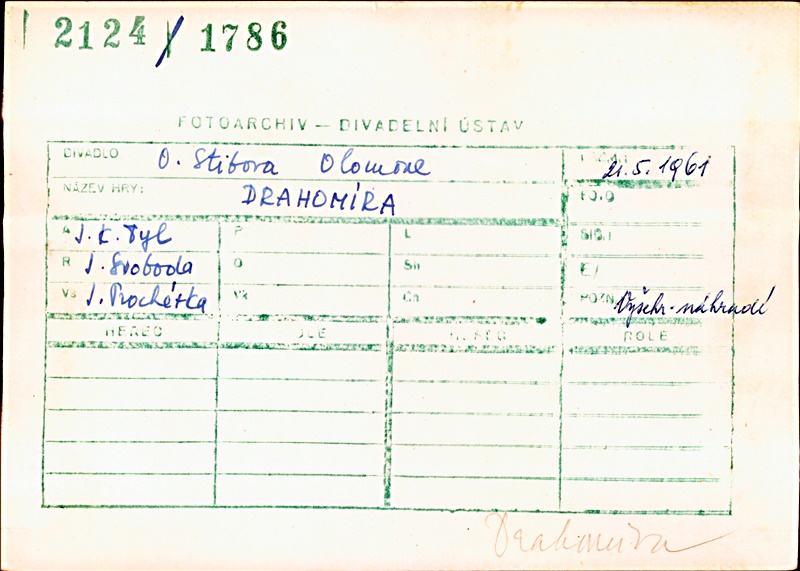 2124/1786
FOTOARCHIV — DIVADELNÍ ÚSTAV
DIVADLO O. Stibora Olomouc 21.5.1961
NÁZEV HRY: DRAHOMÍRA FOTO
A J. K. Tyl P L SIGN
R J. Svoboda O Sh E/
Vs J. Procházka Vk Cn POZN Vyšehr. náhradí
HEREC ROLE HEREC ROLE
Drahomíra